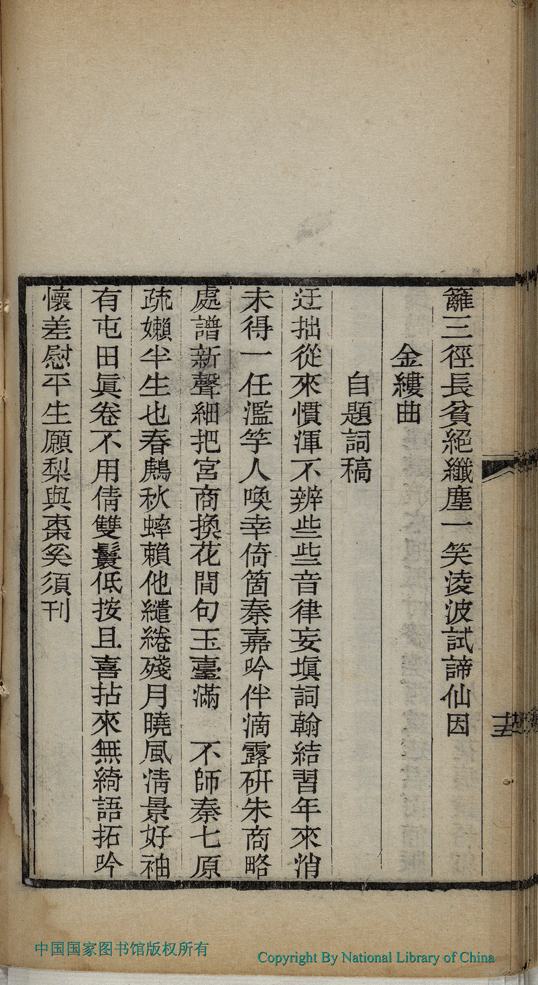 籬三徑長貧絕纖塵一笑淩波試諦仙因
金縷曲
自題詞稿
迂拙從來慣渾不辨些些音律妄塡詞翰結習年來悄
未得一任濫竽人喚幸倚箇秦嘉吟伴滴露硏朱商略
處譜新聲細把宮商換花間句玉臺滿 不師秦七原
疏嬾半生也春鷓秋蟀賴他繾綣殘月曉風情景好袖
有屯田眞卷不用倩雙鬟低按且喜拈來無綺語拓吟
懷差慰平生願梨與棗奚須刊
中国国家图书馆版权所有
Copyright By National Library of China